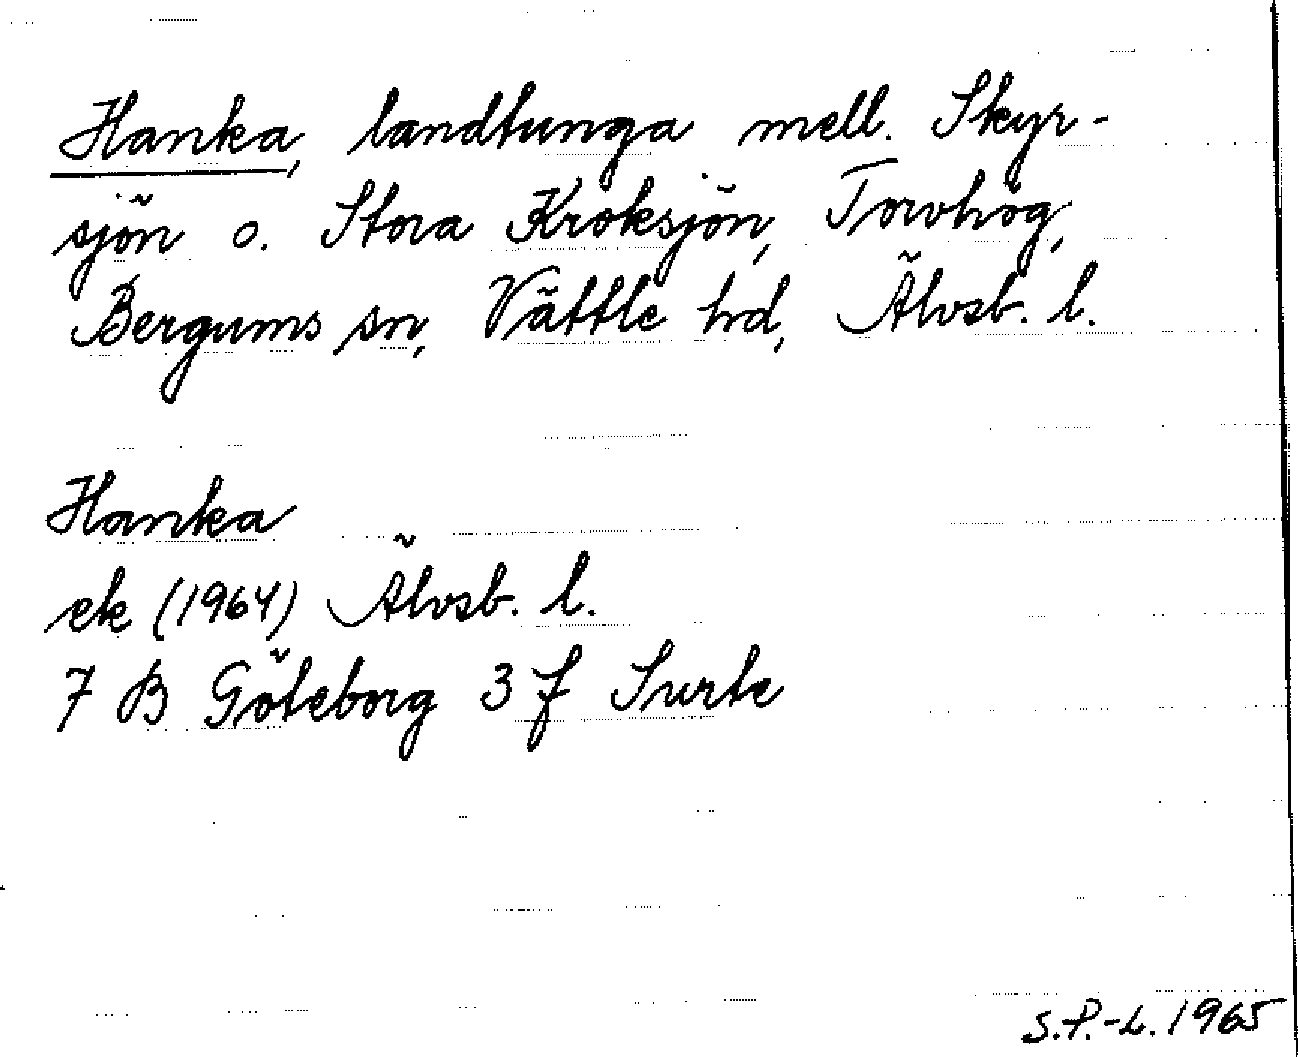 Hanka, landtunga mell. Skyr-
sjön o. Stora Kroksjön, Torvhög,
Bergums sn, Vättle hd, Älvsb. l.
Hanka
ek (1964) Älvsb. l.
7 B Göteborg 3 f Surte
S.P.-L. 1965